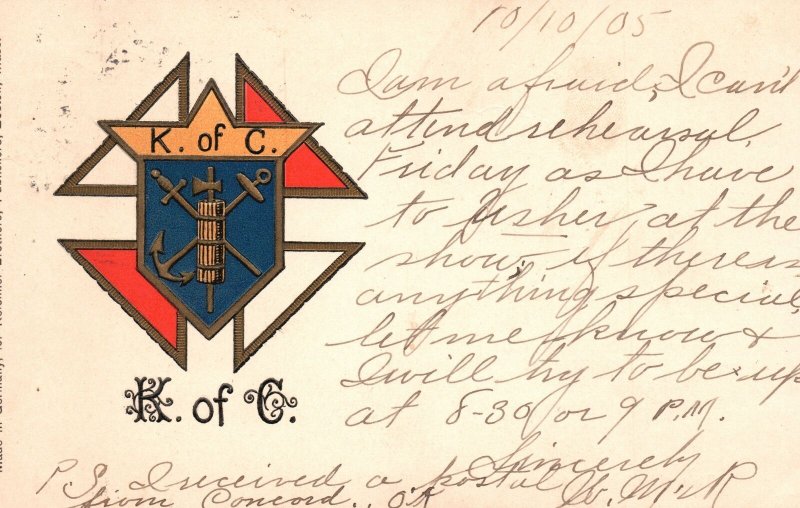 10/10/05
I am afraid, I can't
attend rehearsal
Friday as I have
to Usher at the
show, if there is
anything special,
let me know &
I will try to be up
at 8-30 or 9 P.M.
Sincerely
P.S. I received a postal
from Concord., OK
K. of C.
K. of C.
Made in Germany, for
Boston,